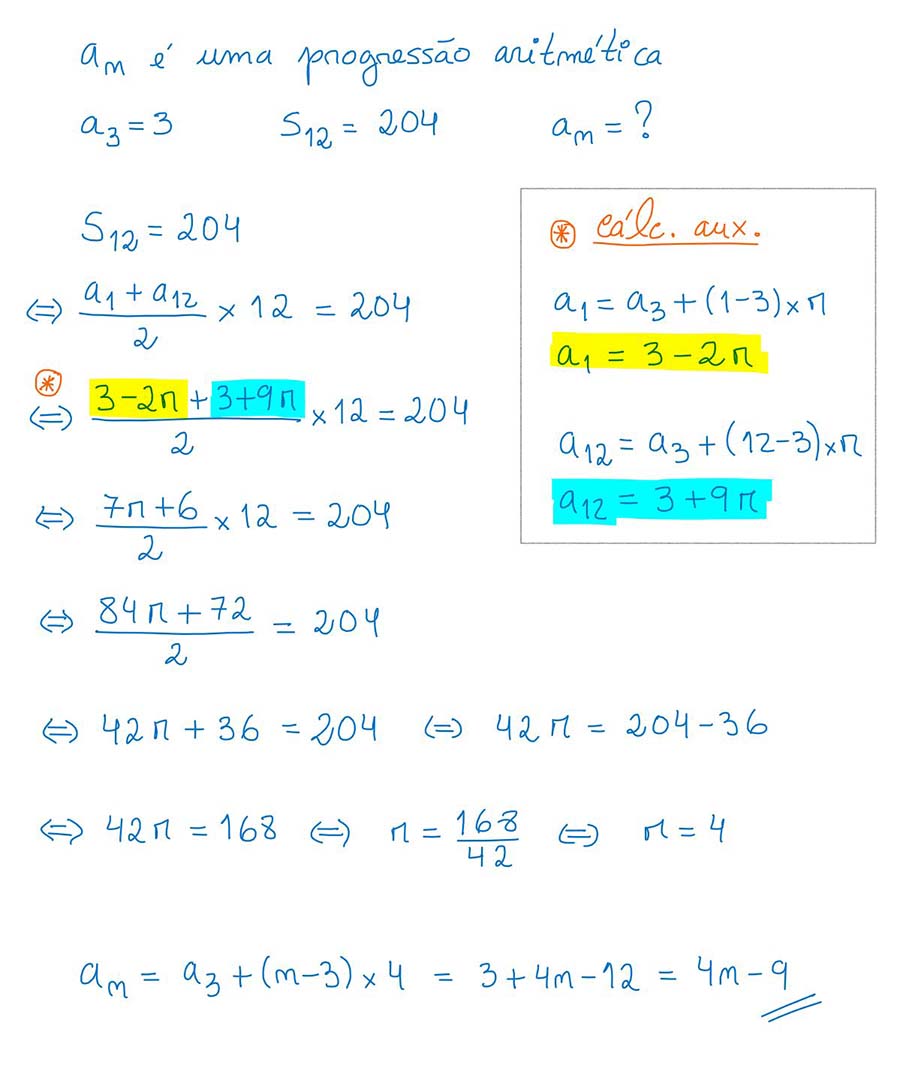 aₙ é uma progressão aritmética
a₃ = 3 S₁₂ = 204 aₙ = ?
S₁₂ = 204
⇔ (a₁ + a₁₂)/2 × 12 = 204
⊛
⇔ (3 − 2r + 3 + 9r)/2 × 12 = 204
⇔ (7r + 6)/2 × 12 = 204
⇔ (84r + 72)/2 = 204
⇔ 42r + 36 = 204 ⇔ 42r = 204 − 36
⇔ 42r = 168 ⇔ r = 168/42 ⇔ r = 4
aₙ = a₃ + (n − 3) × 4 = 3 + 4n − 12 = 4n − 9
⊛ cálc. aux.
a₁ = a₃ + (1 − 3) × r
a₁ = 3 − 2r
a₁₂ = a₃ + (12 − 3) × r
a₁₂ = 3 + 9r